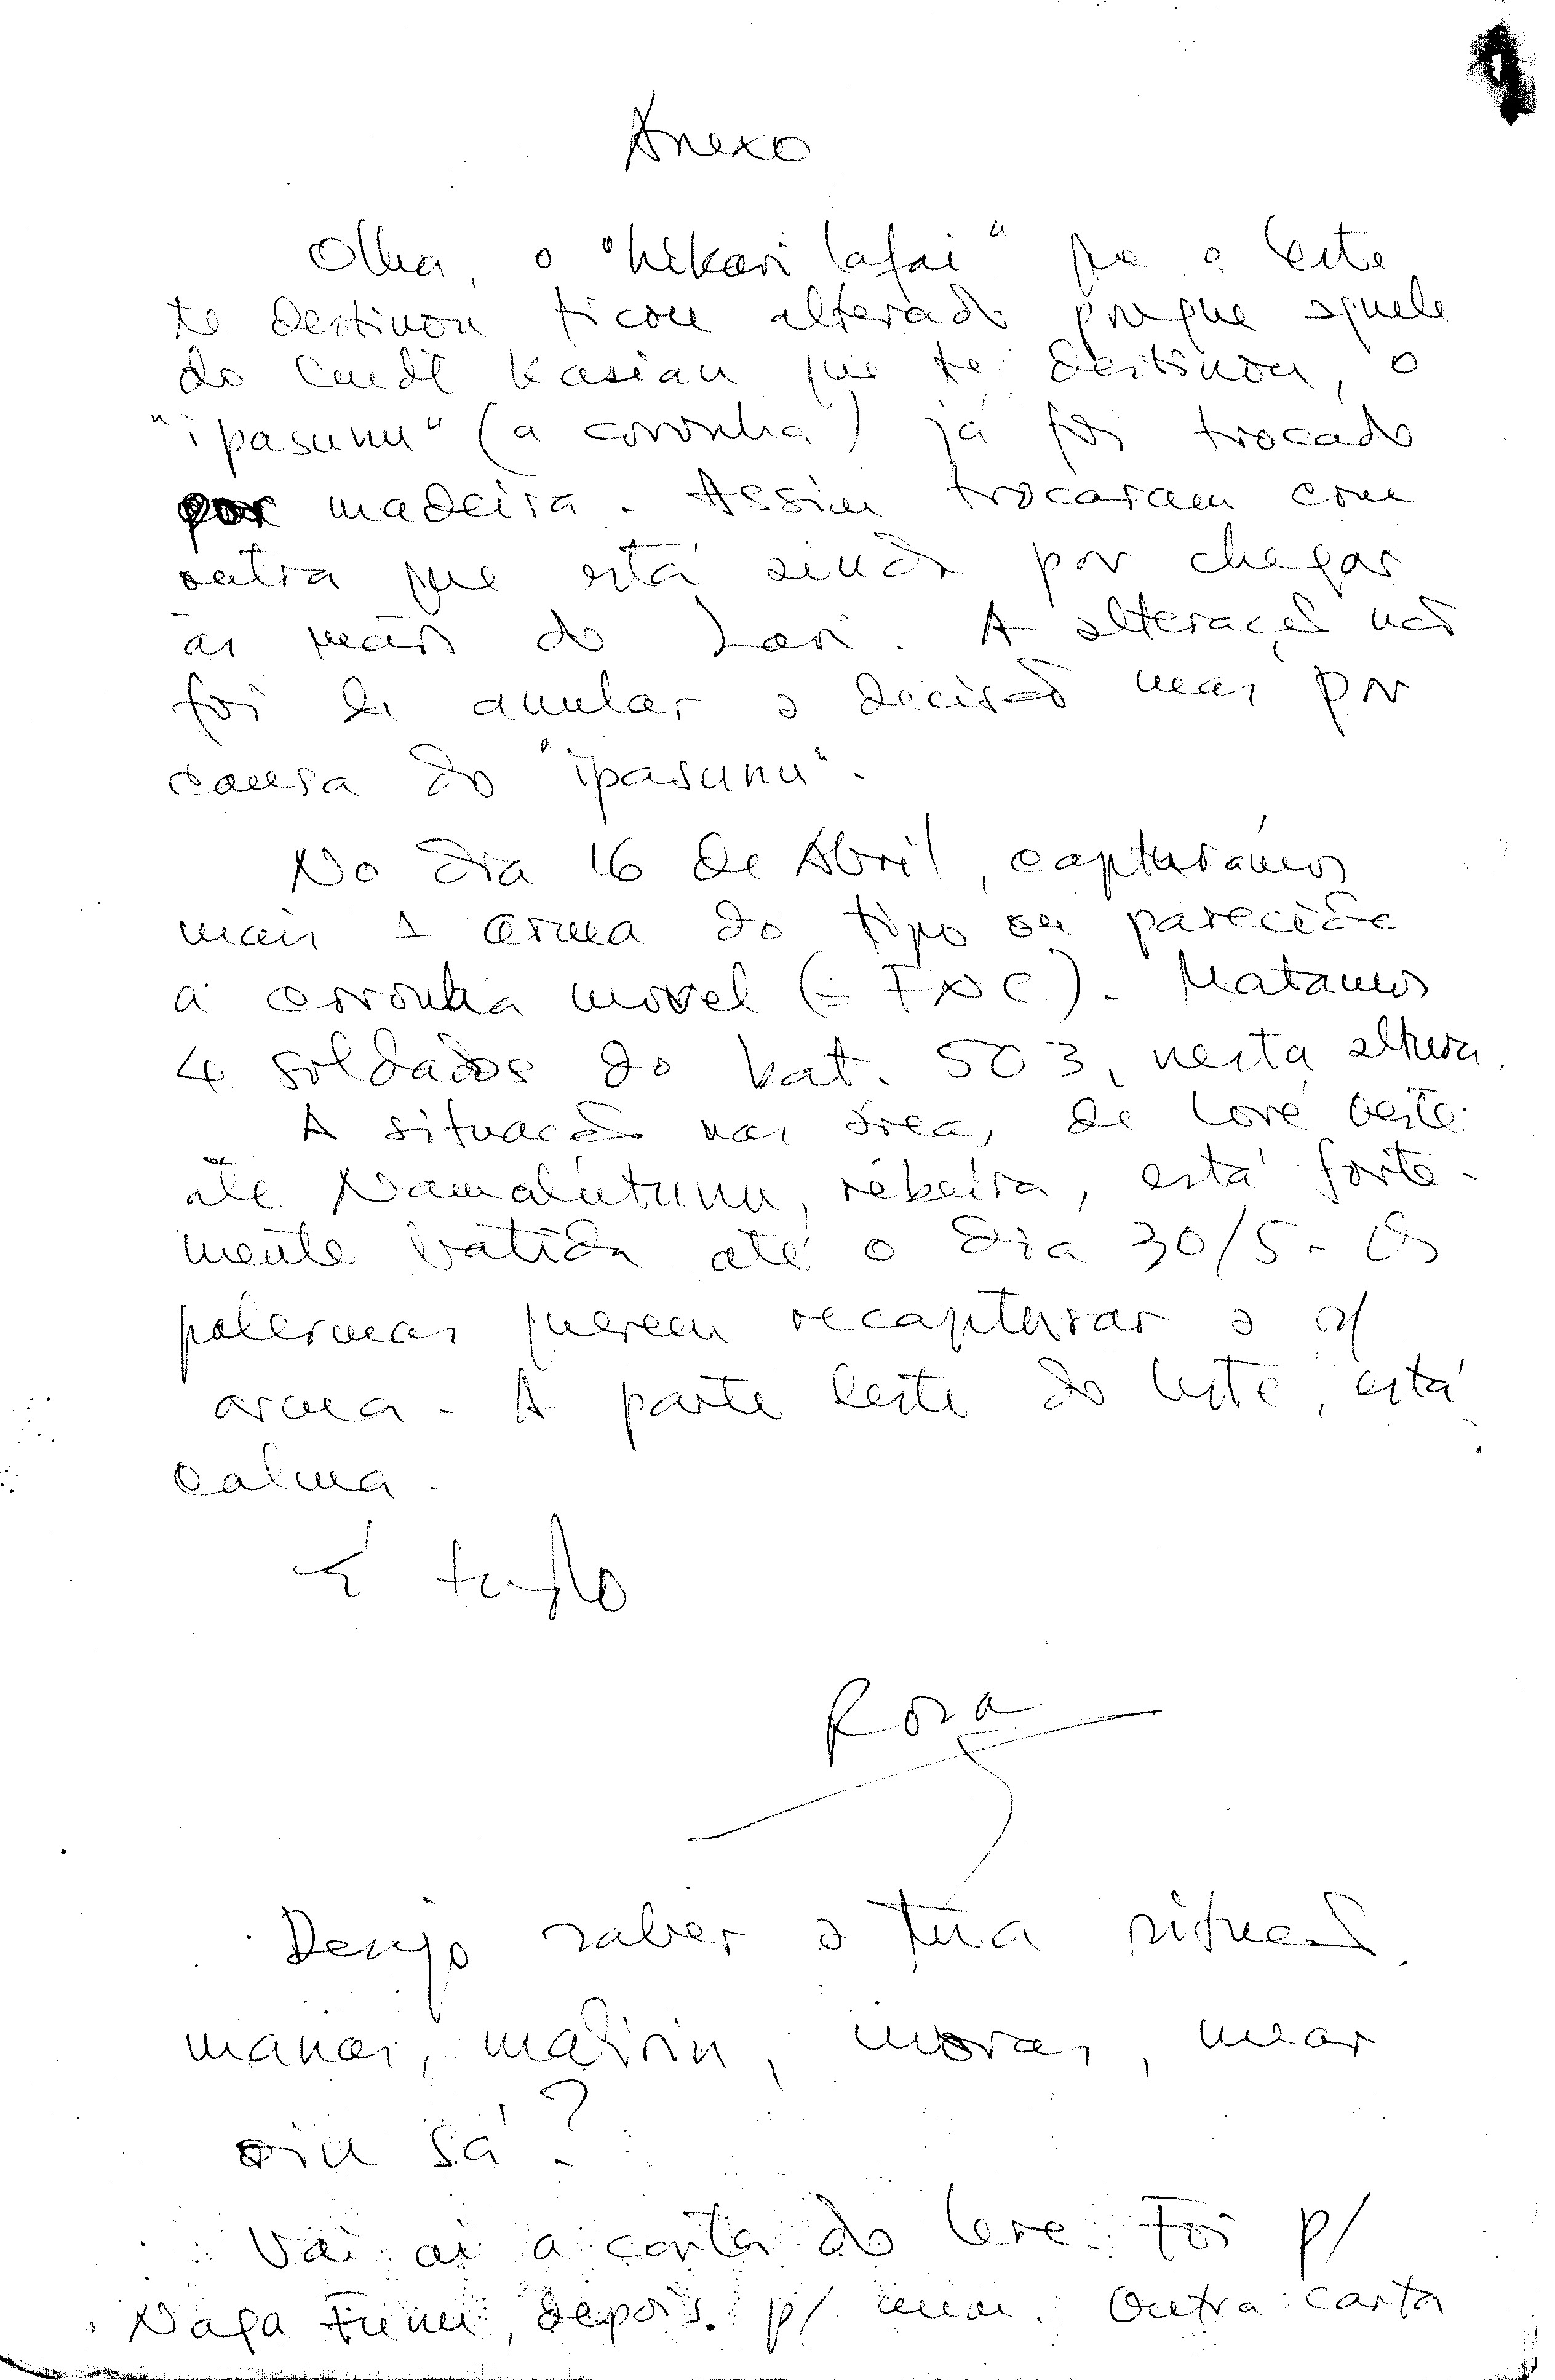 Anexo
Olha, o "hikari lafai" que o Leste
te destinou ficou alterado porque aquele
do Cmdt Kasian que te destinou, o
"ipasunu" (a coronha) já foi trocado
por madeira. Assim trocaram com
outra que está ainda por chegar
às mãos do Lari. A alteração não
foi de anular a decisão mas por
causa do "ipasunu".
No dia 16 de Abril, capturámos
mais 1 arma do tipo ou parecida
à coronha movel (= FNC). Matamos
4 soldados do bat. 503, nesta altura.
A situação nas áreas, de Loré Oeste
até Namalutunu, rebeira, está forte-
mente batida até o dia 30/5. Os
palermas querem recapturar a
arma. A parte leste do leste, está
calma.
É tudo
Rosa
Desejo saber a tua situação,
manas, malirin, moras, mar
oin sá?
Vai aí a carta do Lere. Foi p/
Naga Tunu, depois p/ mim. Outra carta